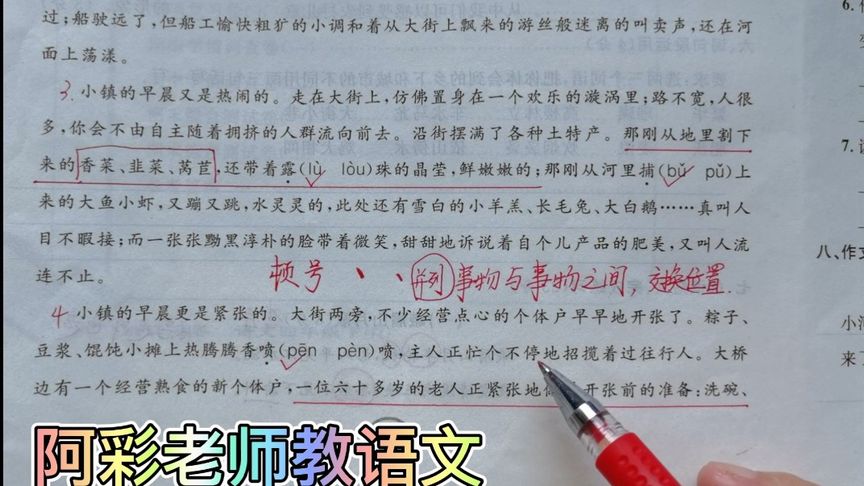 过；船驶远了，但船工愉快粗犷的小调和着从大街上飘来的游丝般迷离的叫卖声，还在河
面上荡漾。
3. 小镇的早晨又是热闹的。走在大街上，仿佛置身在一个欢乐的漩涡里；路不宽，人很
多，你会不由自主随着拥挤的人群流向前去。沿街摆满了各种土特产。那刚从地里割下
来的香菜、韭菜、莴苣，还带着露(lù lòu)珠的晶莹，鲜嫩嫩的；那刚从河里捕(bǔ pǔ)上
来的大鱼小虾，又蹦又跳，水灵灵的，此处还有雪白的小羊羔、长毛兔、大白鹅……真叫人
目不暇接；而一张张黝黑淳朴的脸带着微笑，甜甜地诉说着自个儿产品的肥美，又叫人流
连不止。
顿号 、、并列 事物与事物之间，交换位置.
4 小镇的早晨更是紧张的。大街两旁，不少经营点心的个体户早早地开张了。粽子、
豆浆、馄饨小摊上热腾腾香喷(pēn pèn)喷，主人正忙个不停地招揽着过往行人。大桥
边有一个经营熟食的新个体户，一位六十多岁的老人正紧张地 开张前的准备：洗碗、
阿彩老师教语文
6.
7.
八、作文
小
来了